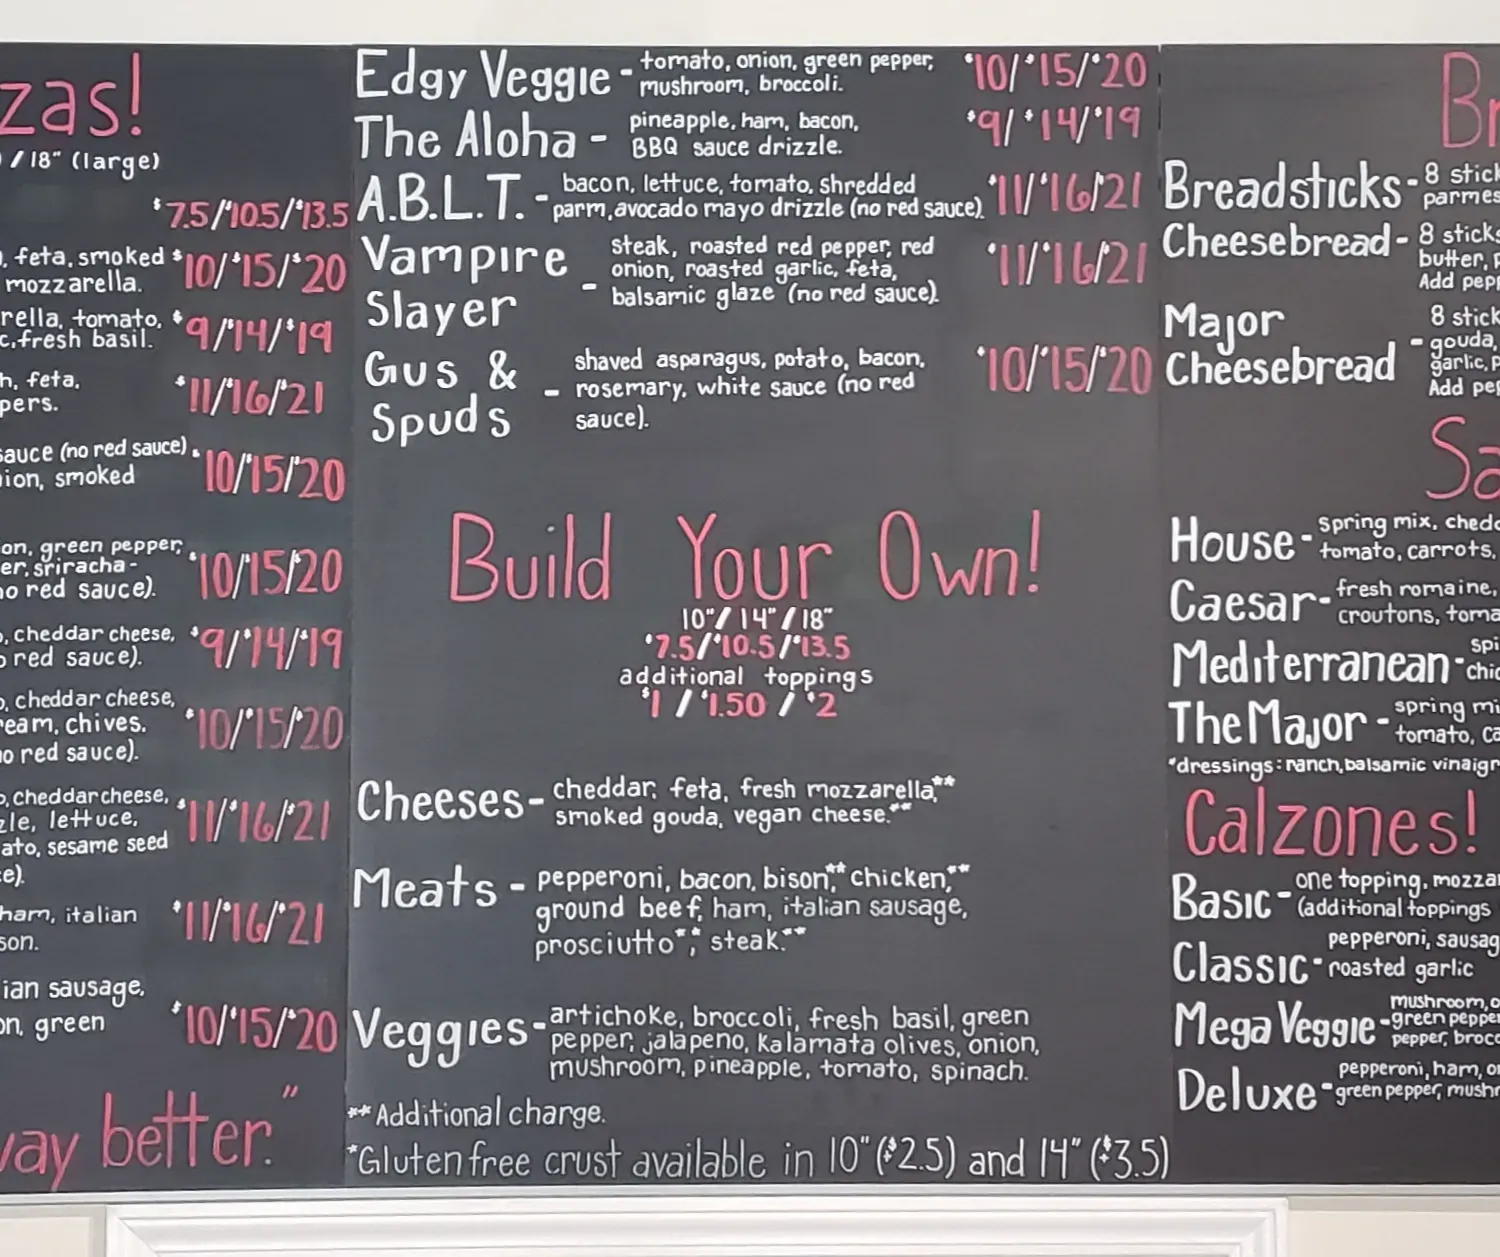 zas!
/ 18" (large)
$7.5/$10.5/$13.5
, feta, smoked $10/$15/$20
mozzarella.
rella, tomato, $9/$14/$19
c, fresh basil.
h, feta, $11/$16/$21
pers.
sauce (no red sauce), $10/$15/$20
ion, smoked
on, green pepper, $10/$15/$20
er, sriracha-
no red sauce).
, cheddar cheese, $9/$14/$19
o red sauce).
, cheddar cheese, $10/$15/$20
ream, chives.
no red sauce).
, cheddar cheese, $11/$16/$21
zle, lettuce,
ato, sesame seed
ce).
ham, italian $11/$16/$21
son.
ian sausage, $10/$15/$20
on, green
way better."
Edgy Veggie - tomato, onion, green pepper, $10/$15/$20
mushroom, broccoli.
The Aloha - pineapple, ham, bacon, $9/$14/$19
BBQ sauce drizzle.
A.B.L.T. - bacon, lettuce, tomato, shredded $11/$16/$21
parm, avocado mayo drizzle (no red sauce).
Vampire Slayer - steak, roasted red pepper, red $11/$16/$21
onion, roasted garlic, feta,
balsamic glaze (no red sauce).
Gus & Spuds - shaved asparagus, potato, bacon, $10/$15/$20
rosemary, white sauce (no red
sauce).
Build Your Own!
10" / 14" / 18"
$7.5/$10.5/$13.5
additional toppings
$1 / $1.50 / $2
Cheeses - cheddar, feta, fresh mozzarella,**
smoked gouda, vegan cheese.**
Meats - pepperoni, bacon, bison,** chicken,**
ground beef, ham, italian sausage,
prosciutto**, steak.**
Veggies - artichoke, broccoli, fresh basil, green
pepper, jalapeno, Kalamata olives, onion,
mushroom, pineapple, tomato, spinach.
**Additional charge.
*Gluten free crust available in 10" ($2.5) and 14" ($3.5)
Br
Breadsticks - 8 stick
parmes
Cheesebread - 8 sticks
butter, p
Add pepp
Major Cheesebread - 8 stick
gouda,
garlic, p
Add pep
Sa
House - Spring mix, chedd
tomato, carrots,
Caesar - fresh romaine,
croutons, toma
Mediterranean - spi
chic
The Major - spring mi
tomato, ca
*dressings: ranch, balsamic vinaigr
Calzones!
Basic - one topping, mozzar
(additional toppings
Classic - pepperoni, sausag
roasted garlic
Mega Veggie - mushroom, o
green pepper
pepper, brocc
Deluxe - pepperoni, ham, on
green pepper, mushr